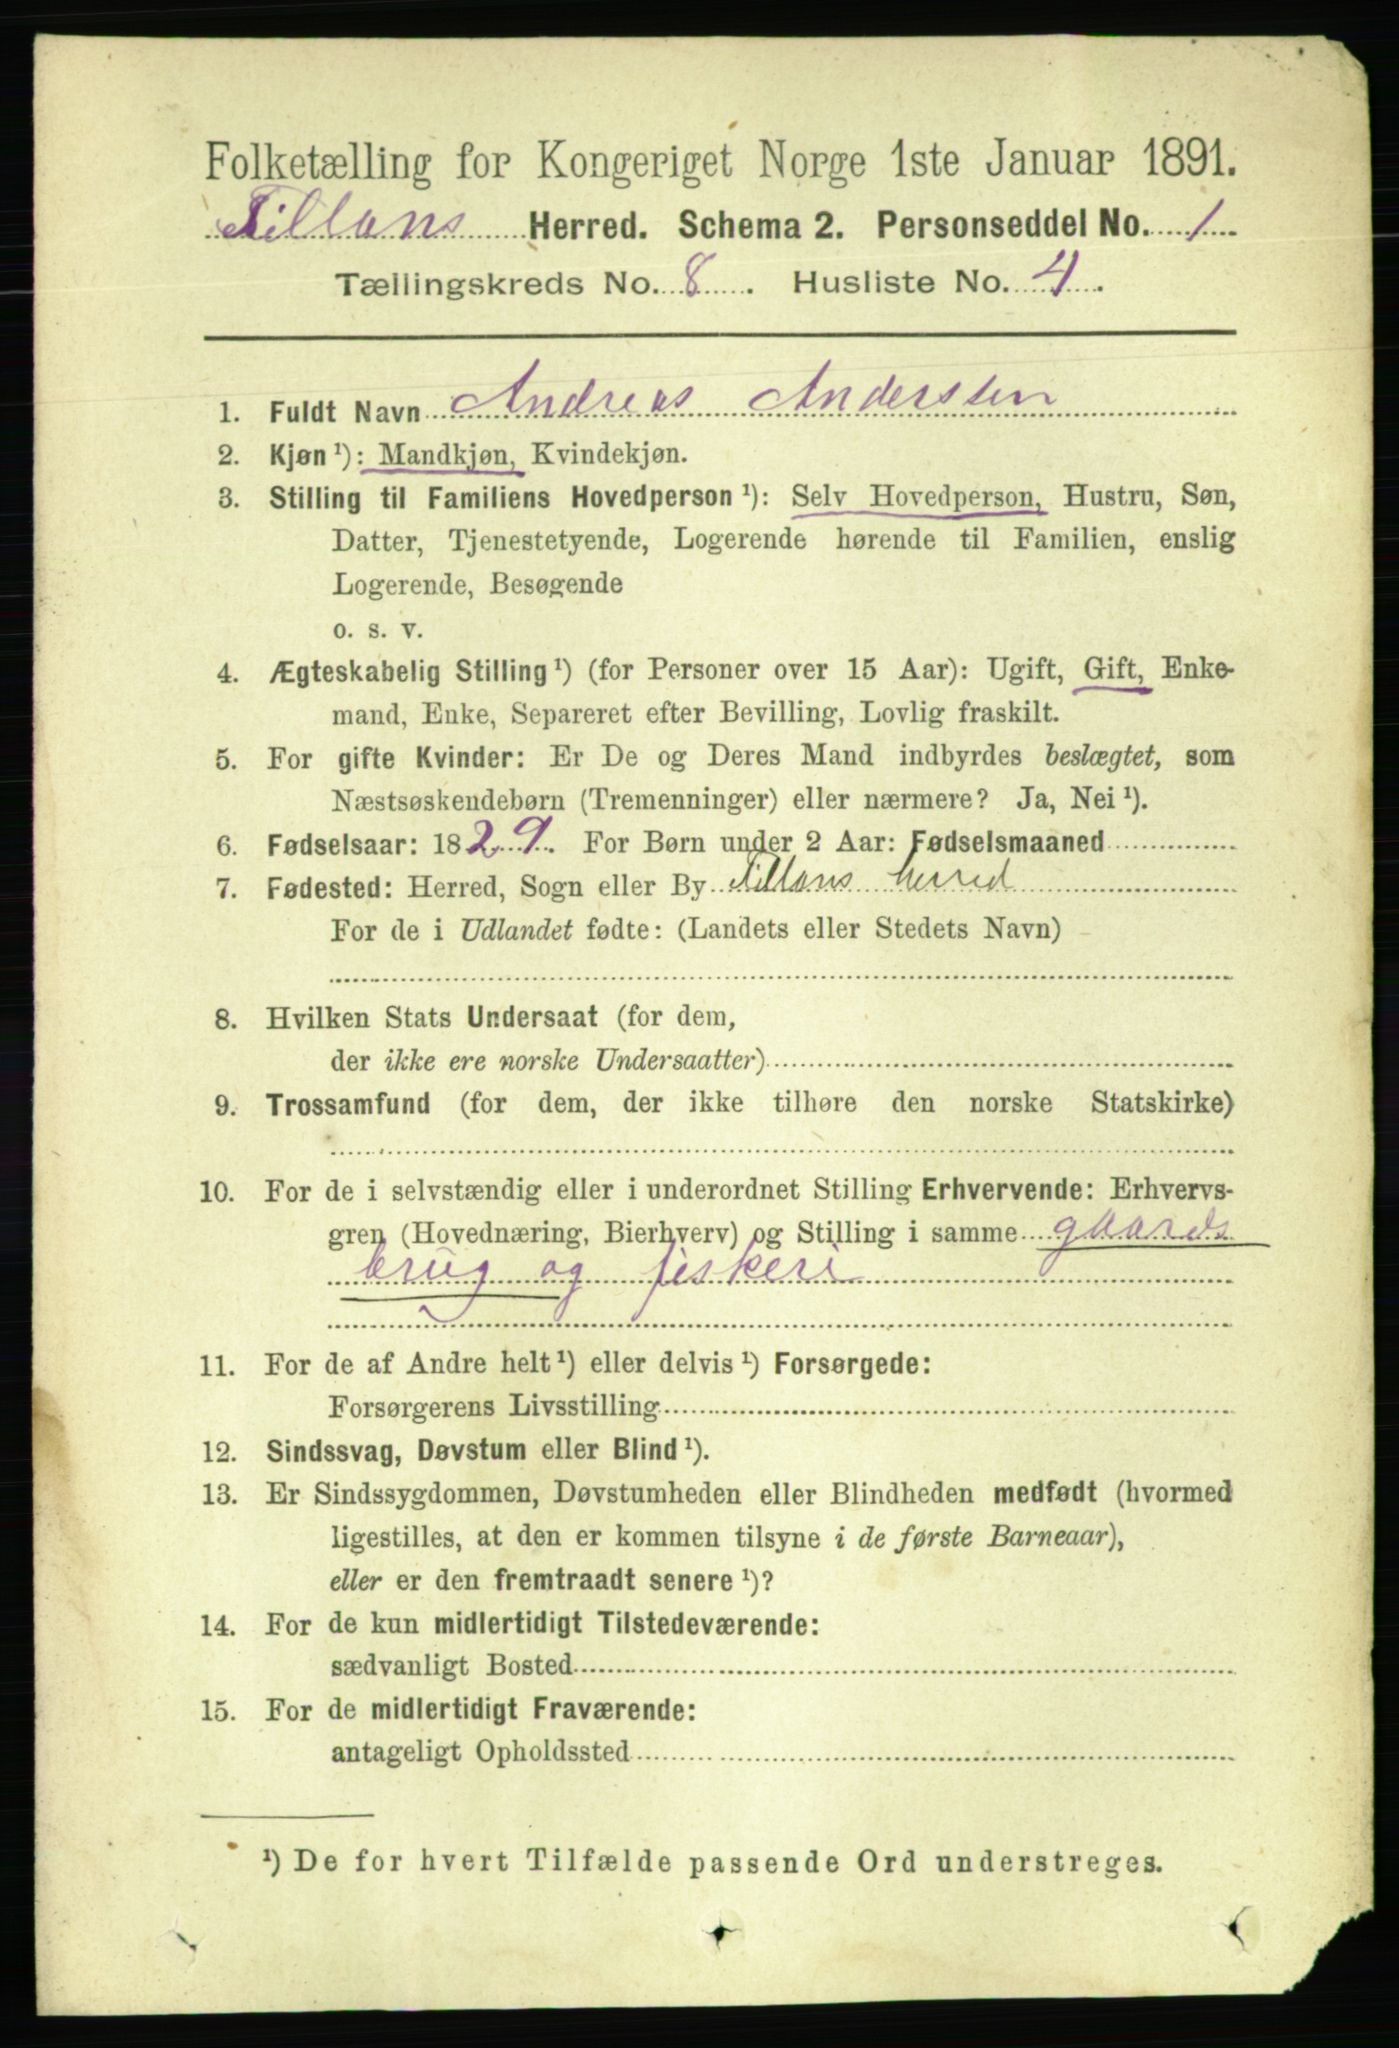 Folketælling for Kongeriget Norge 1ste Januar 1891.
Fillans Herred. Schema 2. Personseddel No. 1
Tællingskreds No. 8. Husliste No. 4.
1. Fuldt Navn Andreas Anderssen
2. Kjøn ¹): Mandkjøn, Kvindekjøn.
3. Stilling til Familiens Hovedperson ¹): Selv Hovedperson, Hustru, Søn,
Datter, Tjenestetyende, Logerende hørende til Familien, enslig
Logerende, Besøgende
o. s. v.
4. Ægteskabelig Stilling ¹) (for Personer over 15 Aar): Ugift, Gift, Enke-
mand, Enke, Separeret efter Bevilling, Lovlig fraskilt.
5. For gifte Kvinder: Er De og Deres Mand indbyrdes beslægtet, som
Næstsøskendebørn (Tremenninger) eller nærmere? Ja, Nei ¹).
6. Fødselsaar: 1829. For Børn under 2 Aar: Fødselsmaaned
7. Fødested: Herred, Sogn eller By Fillans herred
For de i Udlandet fødte: (Landets eller Stedets Navn)
8. Hvilken Stats Undersaat (for dem,
der ikke ere norske Undersaatter)
9. Trossamfund (for dem, der ikke tilhøre den norske Statskirke)
10. For de i selvstændig eller i underordnet Stilling Erhvervende: Erhvervs-
gren (Hovednæring, Bierhverv) og Stilling i samme gaards
brug og fiskeri
11. For de af Andre helt ¹) eller delvis ¹) Forsørgede:
Forsørgerens Livsstilling
12. Sindssvag, Døvstum eller Blind ¹).
13. Er Sindssygdommen, Døvstumheden eller Blindheden medfødt (hvormed
ligestilles, at den er kommen tilsyne i de første Barneaar),
eller er den fremtraadt senere ¹)?
14. For de kun midlertidigt Tilstedeværende:
sædvanligt Bosted
15. For de midlertidigt Fraværende:
antageligt Opholdssted
¹) De for hvert Tilfælde passende Ord understreges.